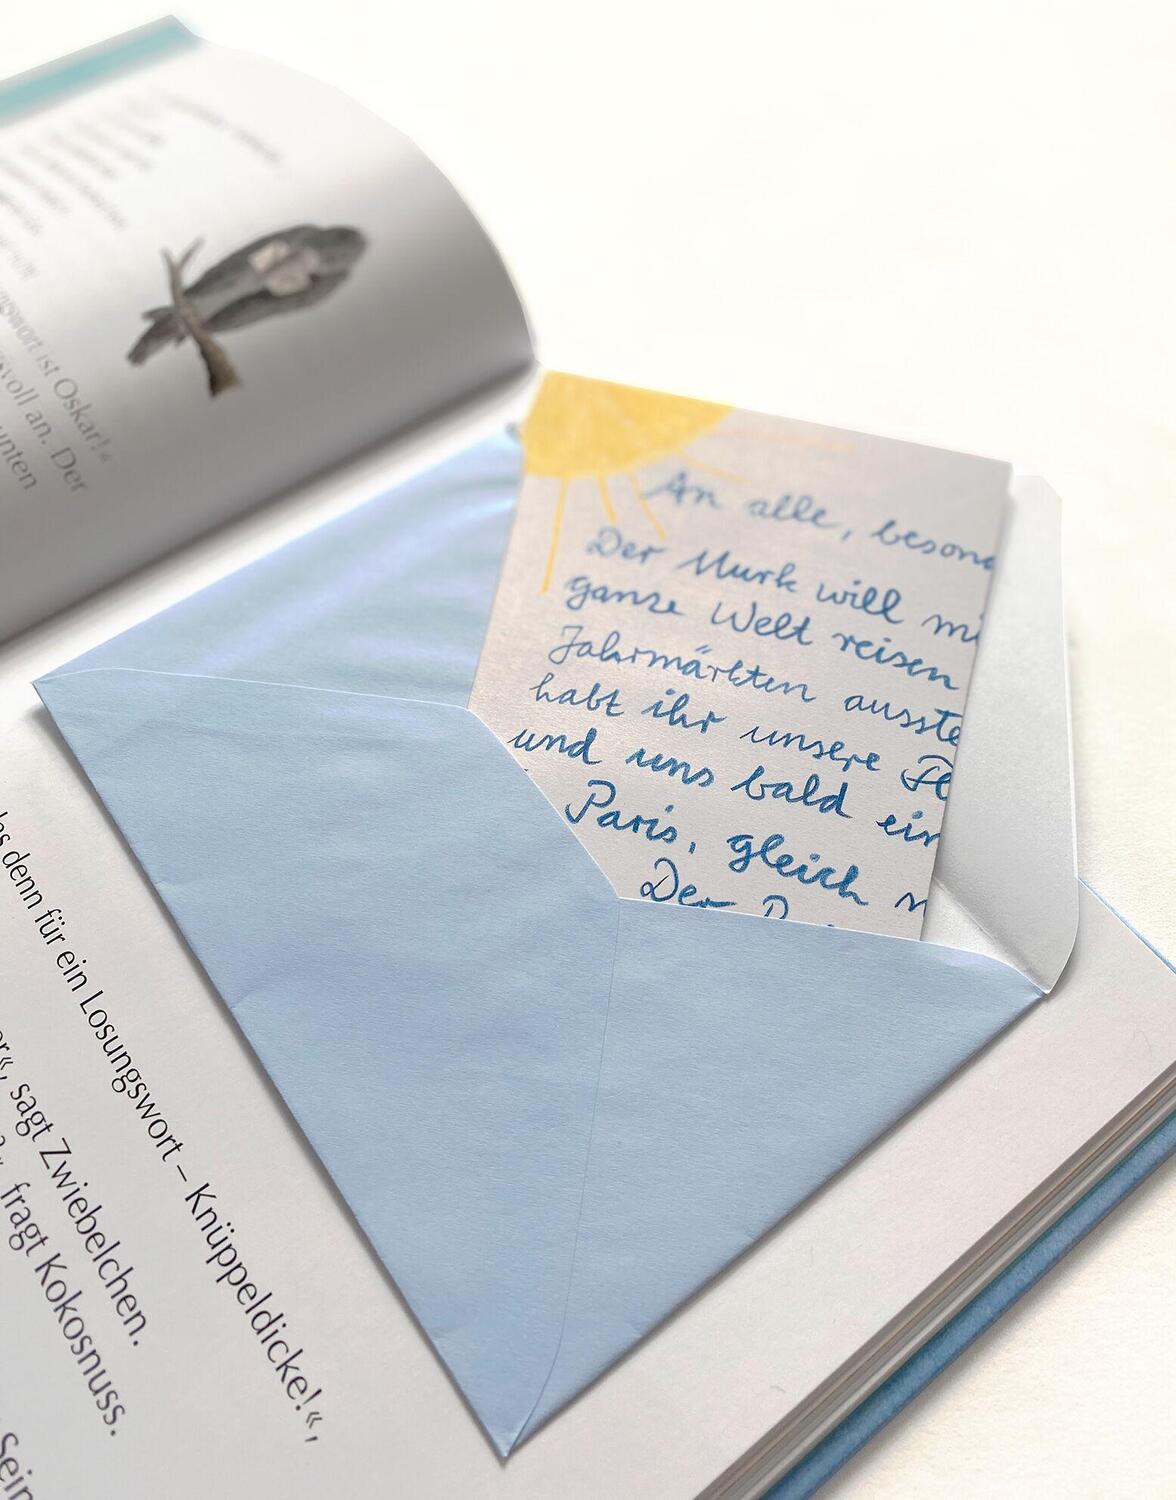 ngswort ist Oskar!«
svoll an. Der
unten
An alle, besond
Der Murk will mi
ganze Welt reisen
Jahrmärkten ausste
habt ihr unsere Fl
und uns bald ein
Paris, gleich n
Der
les denn für ein Losungswort – Knüppeldicke!«,
er«, sagt Zwiebelchen.
?«, fragt Kokosnuss.
Sein